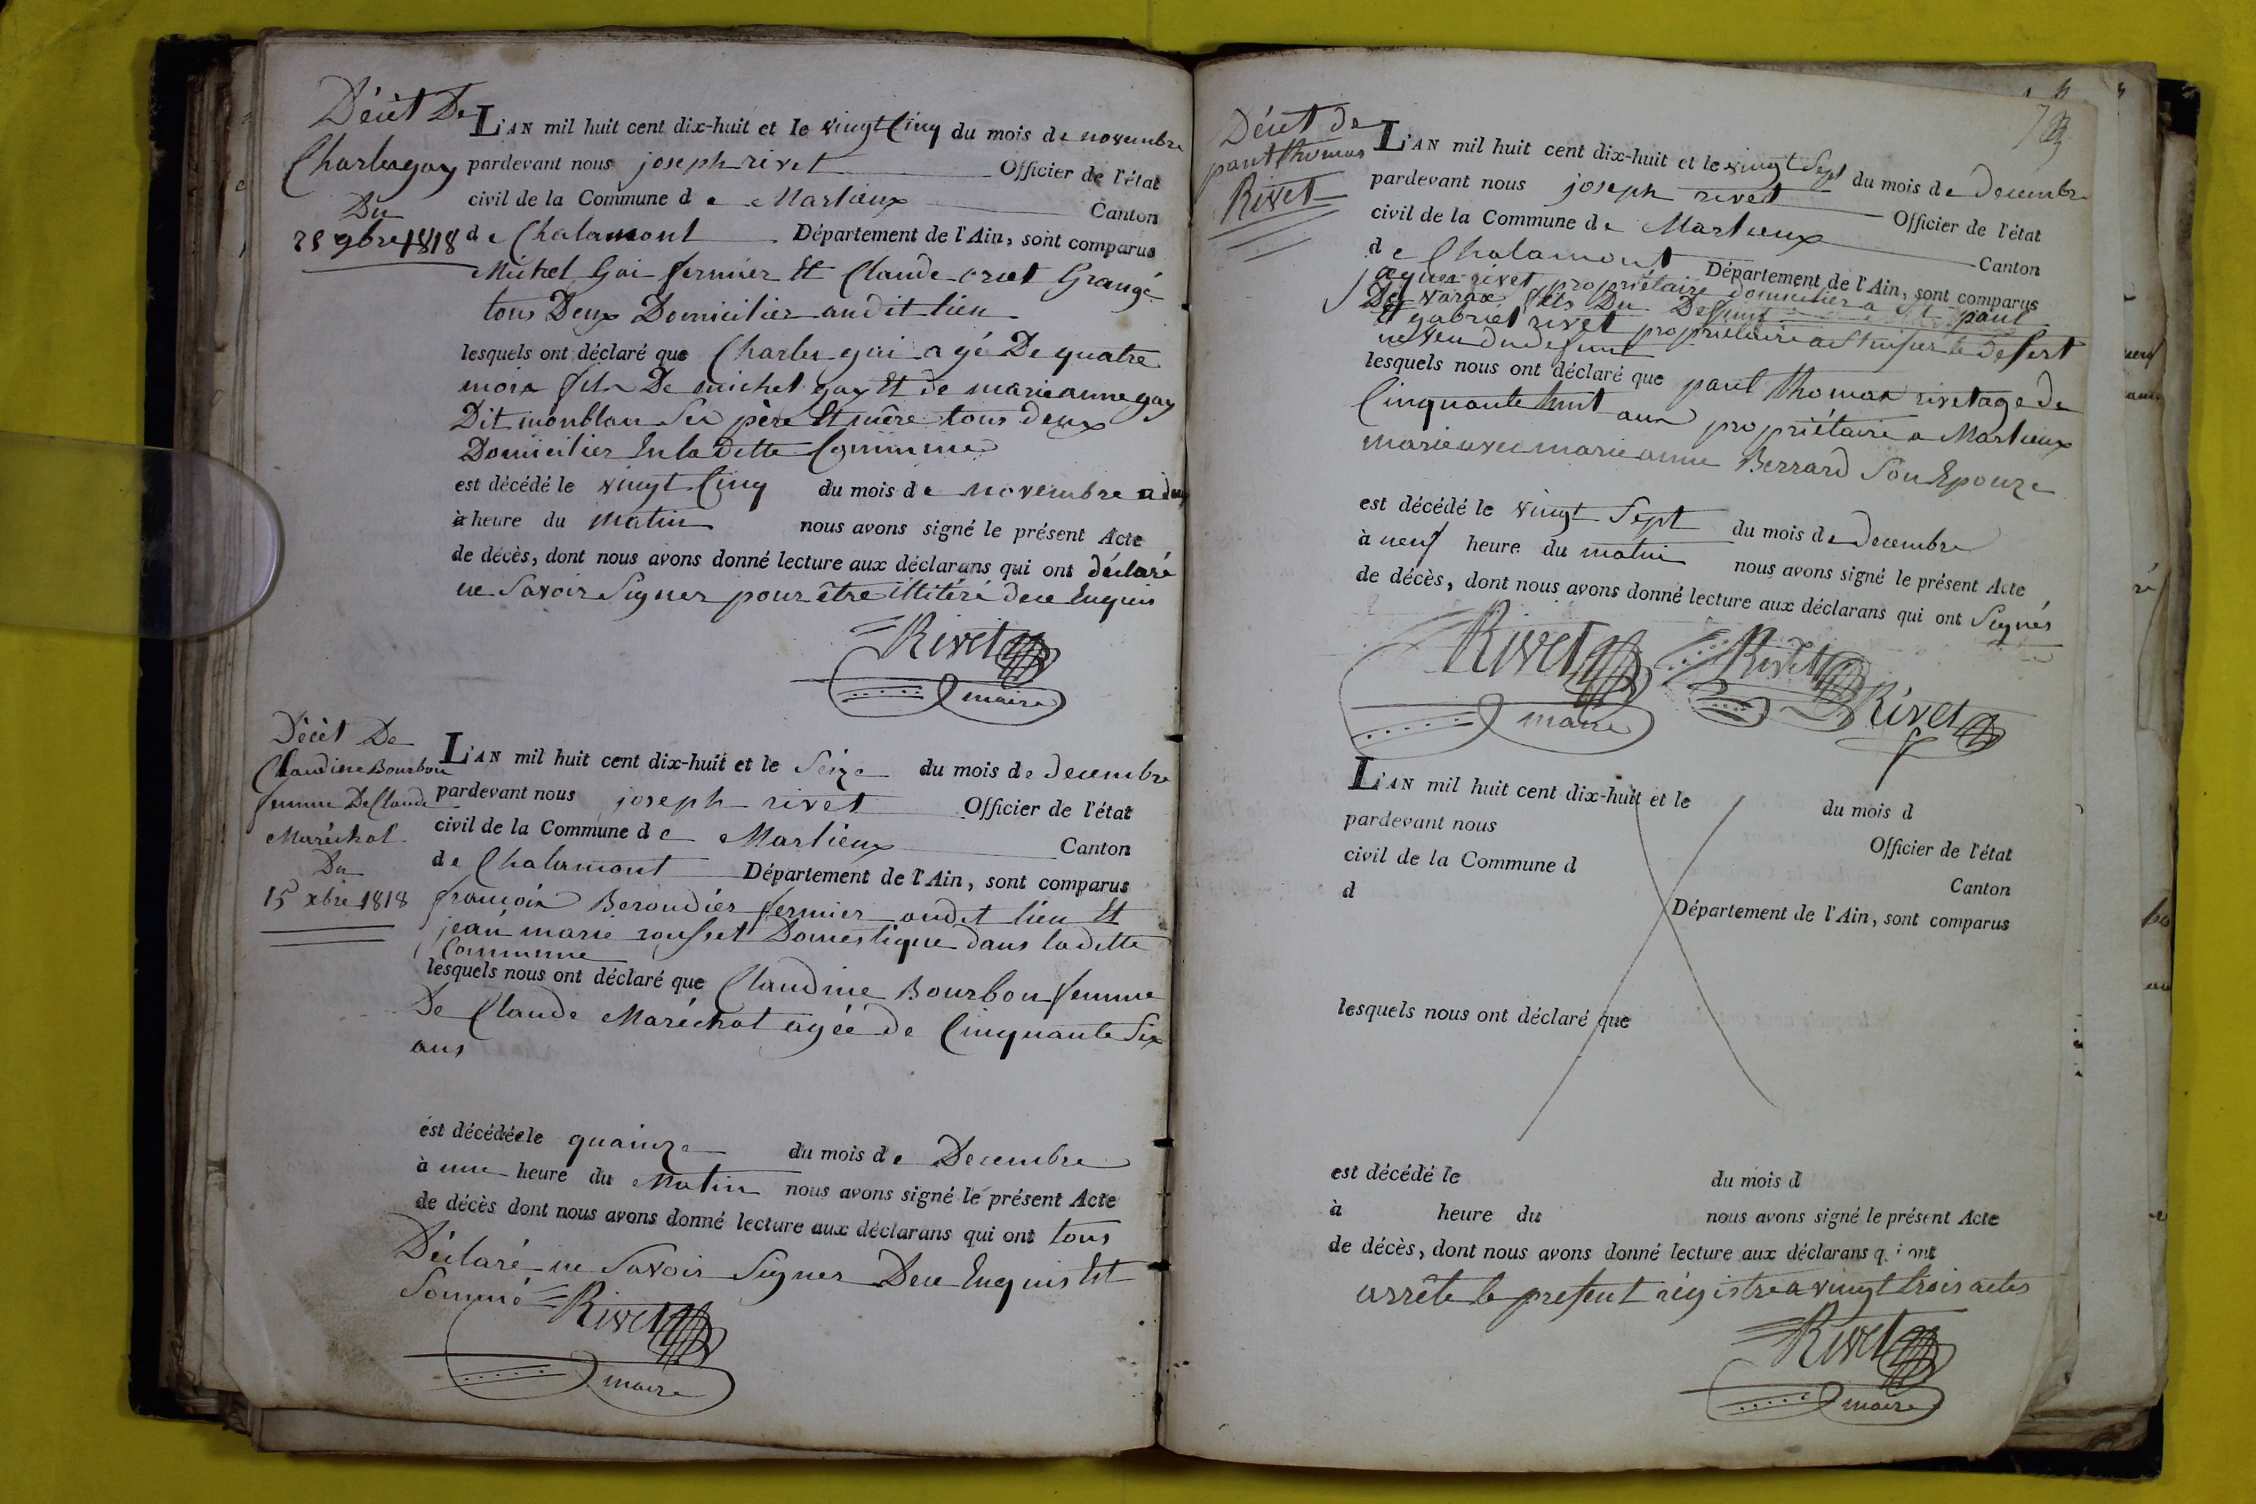 Décèt De
Charle gay
Du
25 9bre 1818
L'AN mil huit cent dix-huit et le vingt Cinq du mois de novembre
pardevant nous joseph rivet Officier de l'état
civil de la Commune de Marlieux Canton
de Chalamont Département de l'Ain, sont comparus
Michel Gai fermier Et Claude Grangé
tous Deux Domicilier audit lieu
lesquels ont déclaré que Charles gai agé De quatre
mois fils De michel gay Et de marie anne gay
Dit monblan Sei père Et mère tous deux
Domicilier En la ditte Commune
est décédé le vingt Cinq du mois de novembre a
à heure du matin nous avons signé le présent Acte
de décès, dont nous avons donné lecture aux déclarans qui ont déclaré
ne Savoir Signer pour être illitéré dece Enquis
Rivet
maire
Décèt De
Claudine Bourbon
femme De Claude
Maréchal
Du
15 xbre 1818
L'AN mil huit cent dix-huit et le Seize du mois de decembre
pardevant nous joseph rivet Officier de l'état
civil de la Commune de Marlieux Canton
de Chalamont Département de l'Ain, sont comparus
françois Beroudier fermier audit lieu Et
jean marie rousset Domestique dans la ditte
Commune
lesquels nous ont déclaré que Claudine Bourbon femme
De Claude Maréchal agée de Cinquante Six
ans
est décédée le quainze du mois de Decembre
à une heure du Matin nous avons signé le présent Acte
de décès dont nous avons donné lecture aux déclarans qui ont tous
Déclaré ne Savoir Signer Dece Enquis Et
Sommé Rivet
maire
Décèt de
paul thomas
Rivet
L'AN mil huit cent dix-huit et le vingt Sept du mois de Decembre
pardevant nous joseph rivet Officier de l'état
civil de la Commune de Marlieux Canton
de Chalamont Département de l'Ain, sont comparus
jaques rivet propriétaire domicilier a St paul
De varax fils Du Deffunt
Et gabriel rivet propriétaire a St nisier le désert
neveu du defunt
lesquels nous ont déclaré que paul thomas rivet age de
Cinquante huit ans propriétaire a Marlieux
marie avec marie anne Berrard Son Epouze
est décédé le vingt Sept du mois de Decembre
à neuf heure du matin nous avons signé le présent Acte
de décès, dont nous avons donné lecture aux déclarans qui ont Signés
Rivet Rivet
maire Rivet
L'AN mil huit cent dix-huit et le du mois d
pardevant nous Officier de l'état
civil de la Commune d Canton
d Département de l'Ain, sont comparus
lesquels nous ont déclaré que
est décédé le du mois d
à heure du nous avons signé le présent Acte
de décès, dont nous avons donné lecture aux déclarans qui ont
arrêté le present régistre a vingt trois actes
Rivet
maire